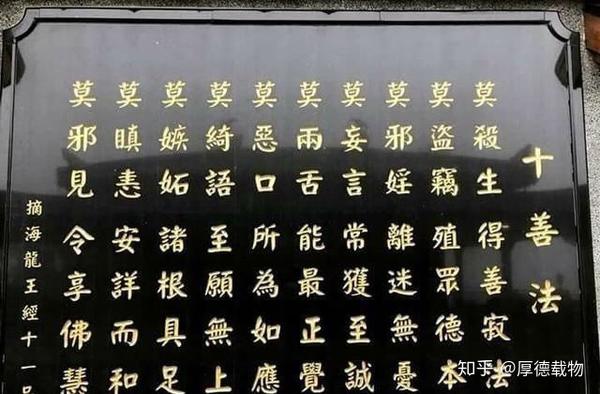 十善法
莫殺生得善寂法
莫盜竊殖眾德本
莫邪婬離迷無憂
莫妄言常獲至誠
莫兩舌能最正覺
莫惡口所為如應
莫綺語至願無上
莫嫉妬諸根具足
莫瞋恚安詳而和
莫邪見令享佛慧
摘海龍王經十一
知乎 @厚德载物